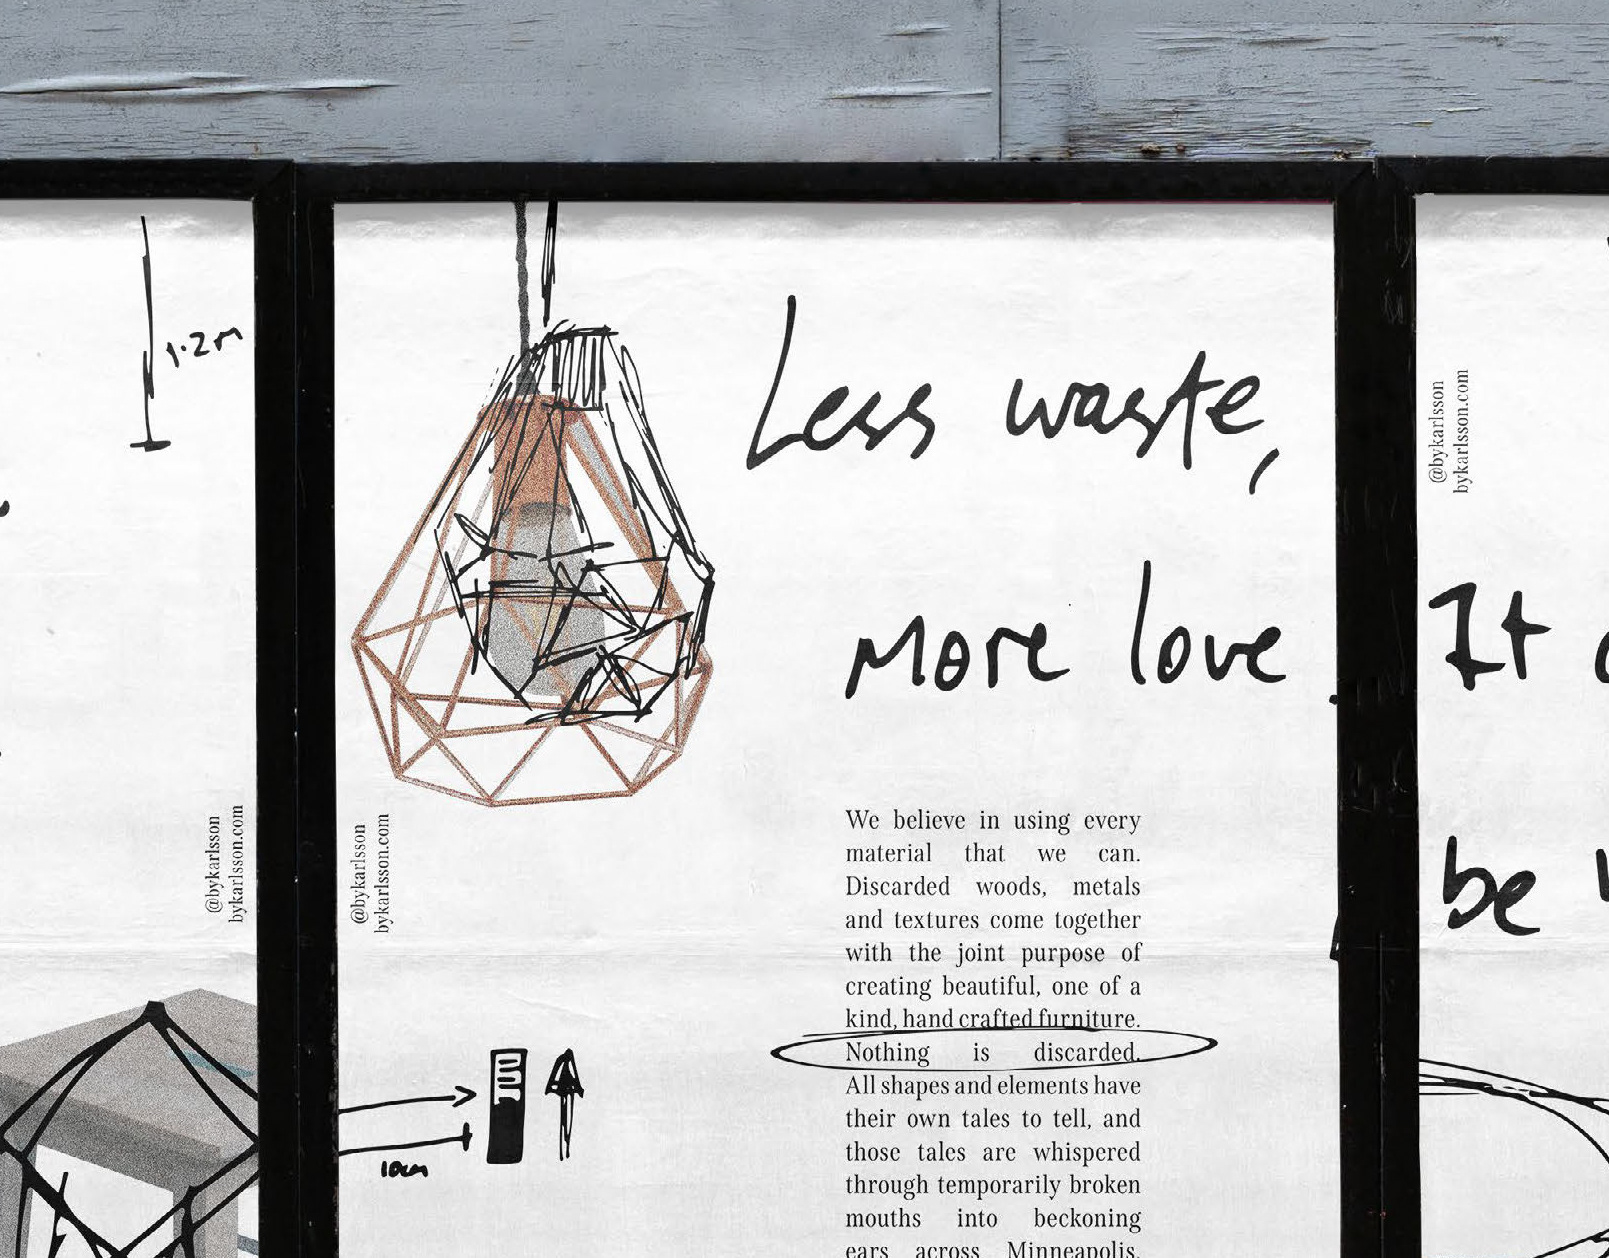 1.2m
@bykarlsson
bykarlsson.com
Less waste,
more love.
@bykarlsson
bykarlsson.com
We believe in using every
material that we can.
Discarded woods, metals
and textures come together
with the joint purpose of
creating beautiful, one of a
kind, hand crafted furniture.
Nothing is discarded.
All shapes and elements have
their own tales to tell, and
those tales are whispered
through temporarily broken
mouths into beckoning
ears across Minneapolis.
10cm
@bykarlsson
bykarlsson.com
It
be